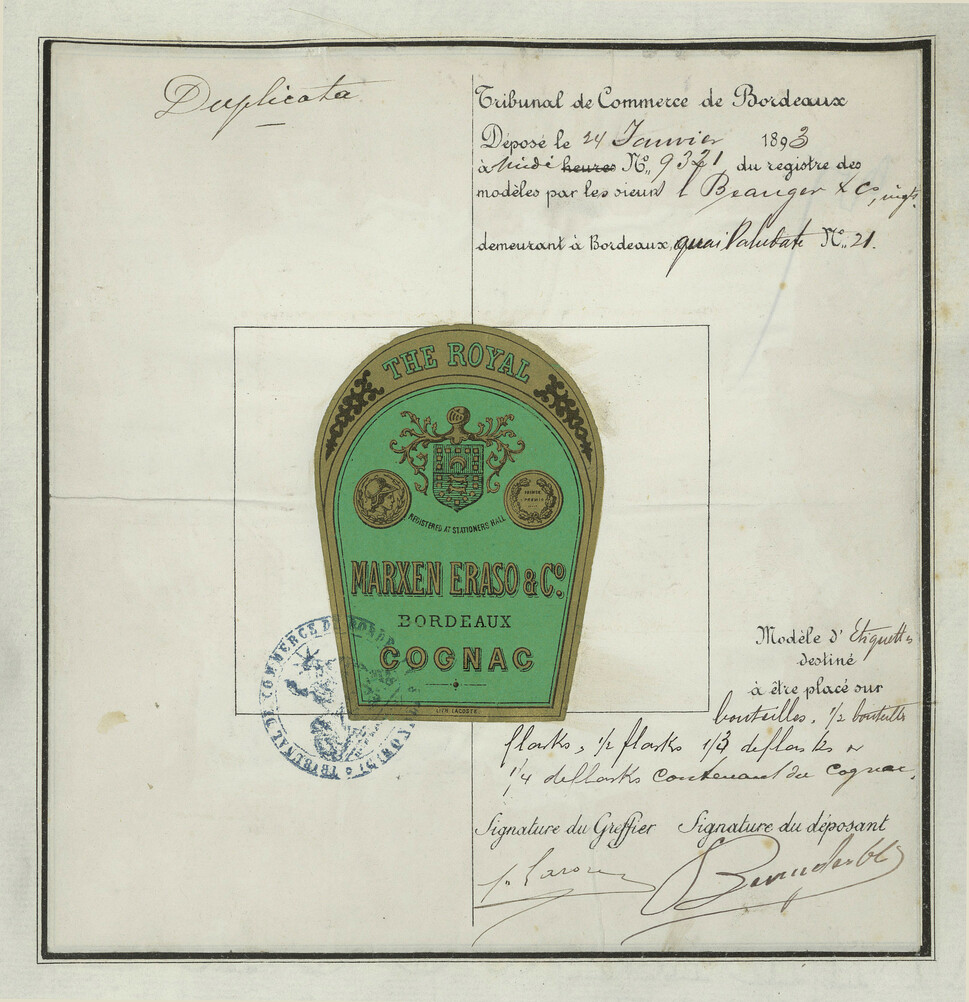 Duplicata
Tribunal de Commerce de Bordeaux
Déposé le 24 Janvier 1893
à Midi heures No. 9321 du registre des
modèles par les sieurs Beauger & Co,
demeurant à Bordeaux, quai Paludate No. 21.
THE ROYAL
REGISTERED AT STATIONERS HALL
MARXEN ERASO & Co.
BORDEAUX
COGNAC
LITH. LACOSTE
TRIBUNAL DE COMMERCE DE BORDEAUX
Modèle d'Etiquettes
destiné
à être placé sur
bouteilles, 1/2 bouteilles
flasks, 1/2 flasks 1/3 de flasks
1/4 de flasks contenant du cognac.
Signature du Greffier Signature du déposant